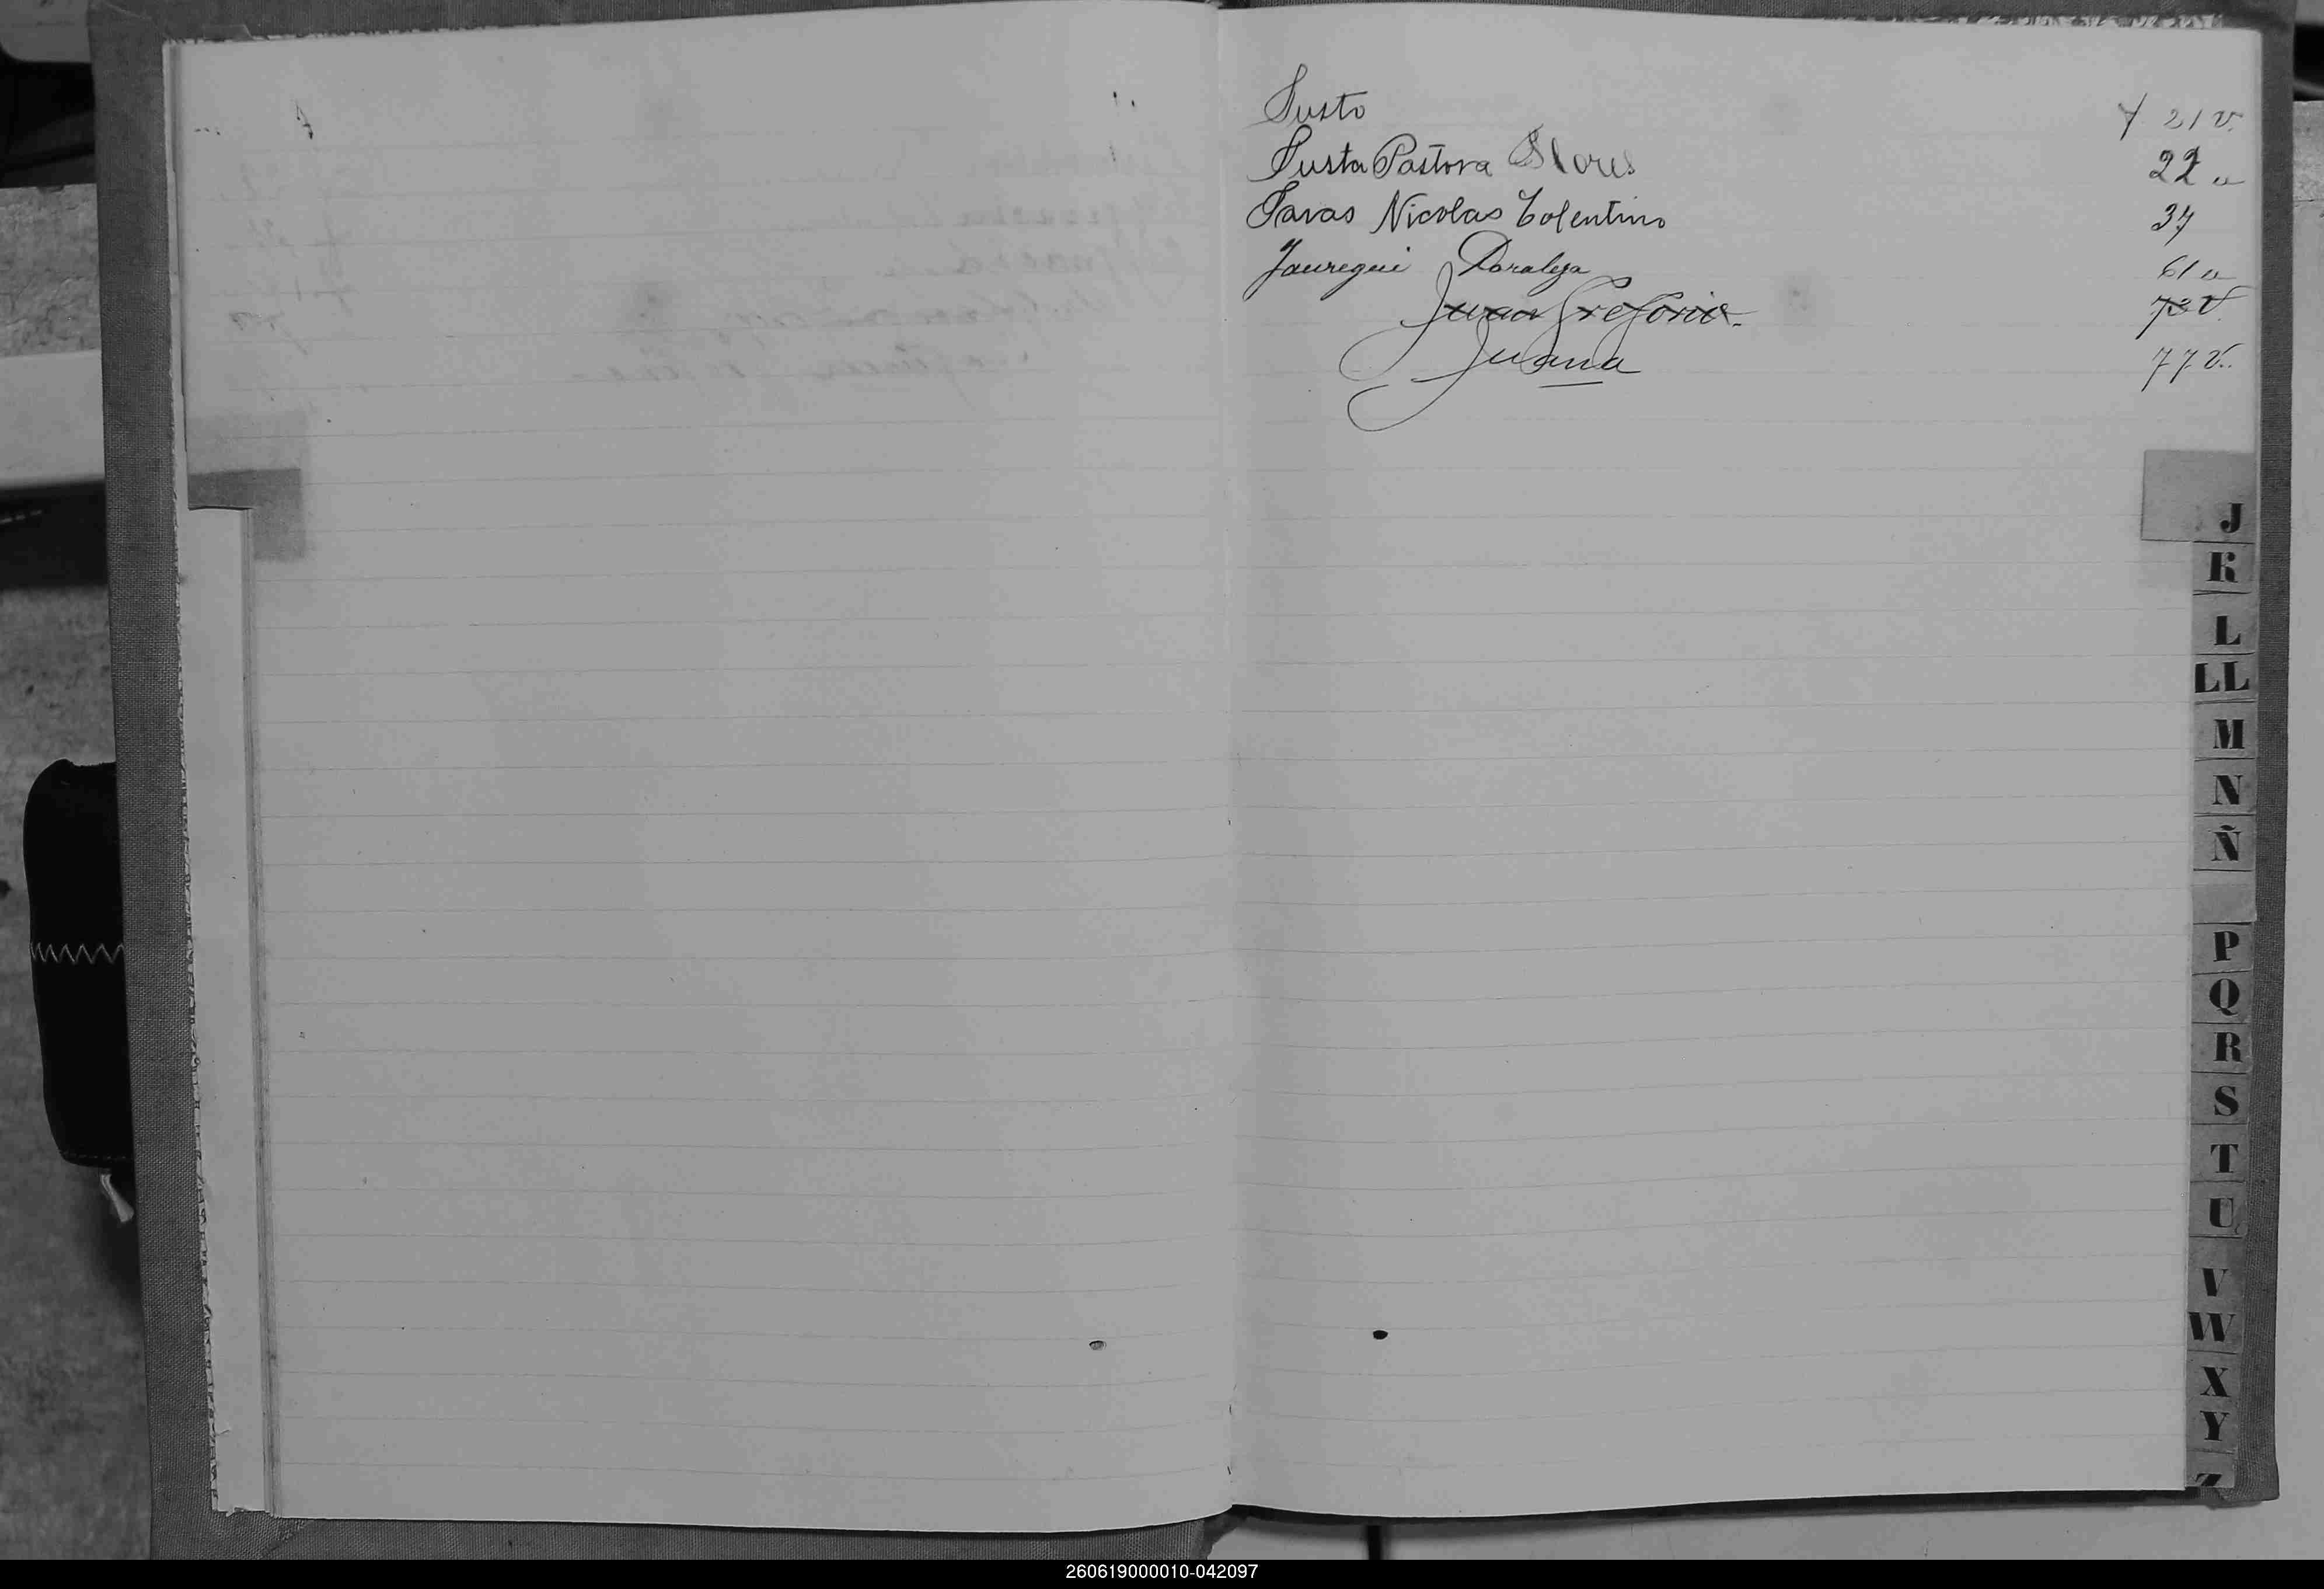 Justo Y 21 v.
Justa Pastora Flores 22 v
Javas Nicolas Tolentino 37
Jauregui 61 v
Juan Gregorio. 73 V.
Juana 77 V.
J
K
L
LL
M
N
Ñ
P
Q
R
S
T
U
V
W
X
Y
Z
260619000010-042097